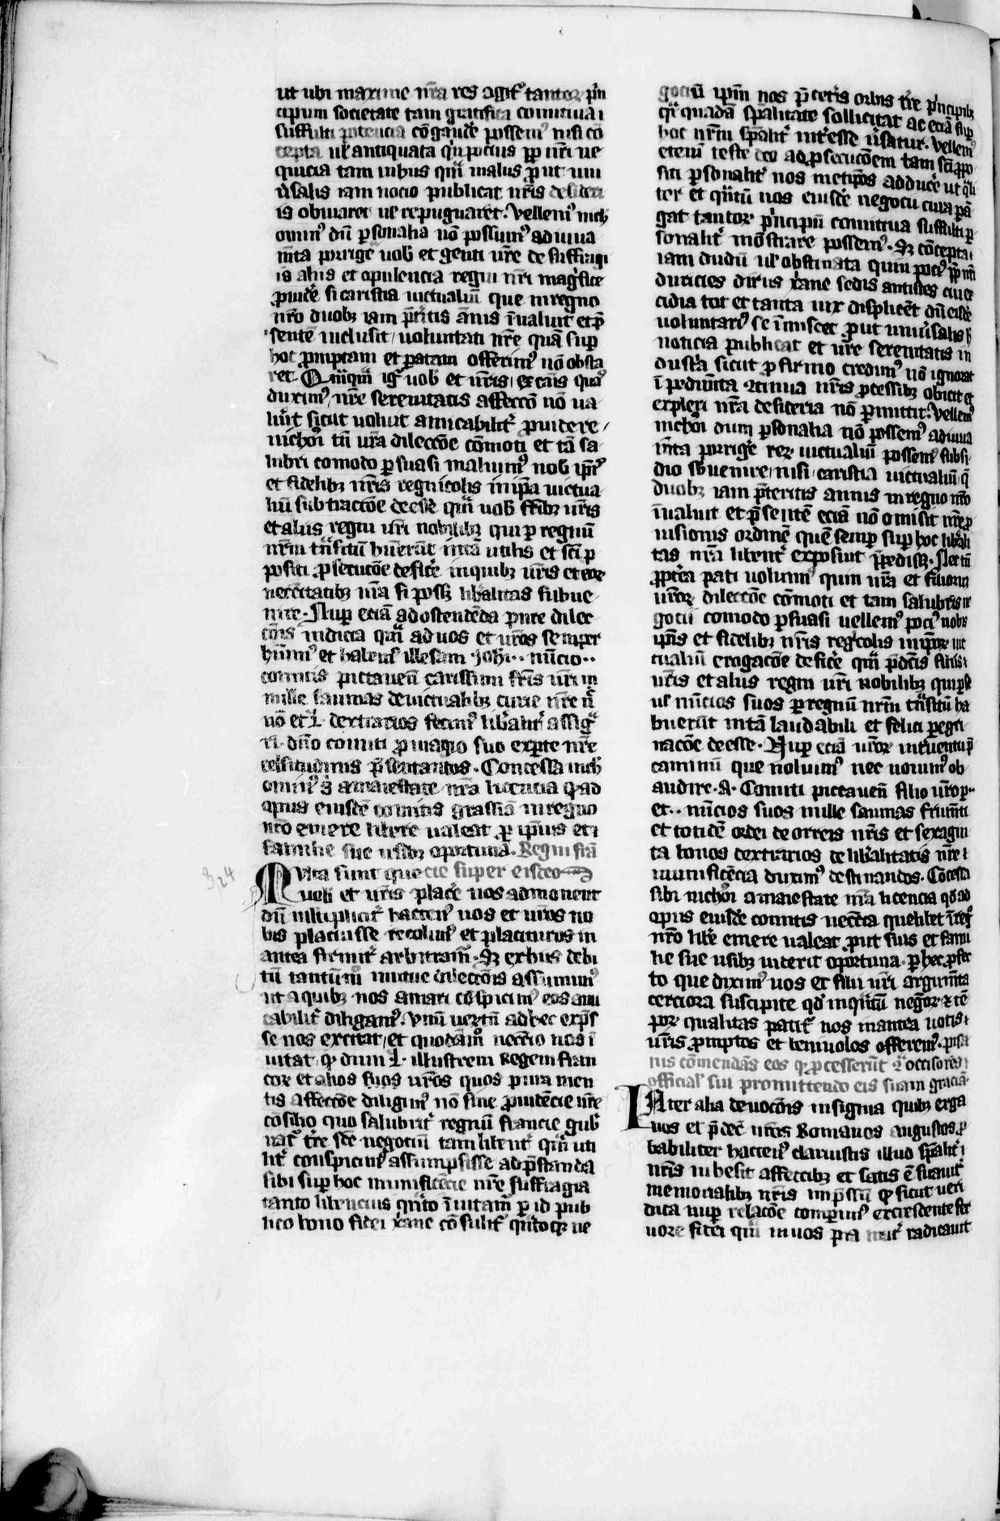 ut ubi maxime nr̄a res agit̄ tantor prin
cipum societate tam gratifica comitiua i
suffulti potencia cōgaude possem nisi cō
cepta ul' antiquata qn pocius ꝑp nr̄i ne
quicia tam inbus qm malus ꝓut uni
ūsalis iam nocio publicat nr̄is desideri
is obuiaret ul' repugnaret. Vellem nich
omin' dū ꝑsonalia nō possum' adiuua
mt̄a porrige uob et genti ur̄e de suffragi
is aliis et opulencia regni nr̄i maḡfice
ꝓinde si caristia uictualiū que in regno
nr̄o duobꝫ iam p̄titis ānis īualuit et p̄
sente inclusit uoluntati nr̄e quā suꝑ
hoc ꝓmptam et ꝑatam offerim' nō obsta
ret. Quāqm igr uob et ur̄is et cāis quas
duxim' ur̄e serenitatis affecc̄o nō ua
luit sicut uoluit amicabilit̄ ꝓuidere
nichōi tn̄ ur̄a dilecc̄oe cōmoti et tā sa
lubri comodo ꝑsuasi malum' uob ip̄is
et fidelibꝫ ur̄is regnicolis in ip̄a uictua
liū subtracc̄oe deesse qm uob ff̄ibꝫ ur̄is
et aliis regni ur̄i nobilibꝫ qui ꝑ regnū
nr̄m tn̄sitū hūerūt inta utilis et sc̄i ꝓ
positi ꝓsecucōe deficē inquibꝫ ur̄is et eor
necc̄itatibꝫ nr̄a si poss libalitas subue
nire. Nuꝑ eciā ad ostendēda pure dilec
cōis indicia qm ad uos et ur̄os semper
hūim' et habem' illesam Joh̄i .. nūcio ..
comitis pictauen̄ carissimi fr̄is ur̄i in
mille saumas de uictualibꝫ cure nr̄e n
uō et .L. dextrarios fecim' libalit̄ assig̅
ri. dn̄o comiti ꝓ uiagio suo exꝑte nr̄e
celsitudinis p̄sentantos. Concessa nich
omin' ei a maiestate nr̄a licencia qd̄ ad
opus eiusdē comitis grassiā in regno
nr̄o emere libere ualeat ꝓ ip̄ius et i
familie sue usibꝫ oportuna. Regi fr̄a
cie super eisdeō
Multa sunt que
uob et ur̄is placē nos admonent
dū mltiplicit̄ hacten' uos et ur̄os no
bis placuisse recolim' et placituros in
antea firmit̄ arbitram̄. Sꝫ ex hiis debi
tū tantūm mutue dilecc̄ois assumim'
ut a quibꝫ nos amari cōspicim' eos ami
cabilit̄ diligam'. Vnū uer tn̄ ad hec exp̄s
se nos excitat et quodām neccio nos i
uitat qꝫ dum .L. illustrem Regem fran
cor et alios suos ur̄os quos pura men
tis affecc̄oe diligim' nō sine ꝓuidēcie ur̄e
cōsilio quo salubrit̄ regnū francie gub
nat̄ tr̄e sc̄e negotiū tam libent̄ qm uti
lit̄ conspicim' assūmpsisse ad p̄standa
sibi suꝑ hoc munificēcie nr̄e suffragia
tanto libencius qn̄to īuitam̄ ꝑ id pub
lico bono fidei x̄ane cōsulit̄ qn̄toqꝫ ne
gociū ip̄m nos p̄ cetis orbis tr̄e p̄ncipibꝫ
q̄dā quadam sp̄alitate sollicitat ac eciā suꝑ
hoc nr̄m sp̄alit̄ int̄esse ūsatur. Vellem'
etenim teste deo ad ꝓsecucōem tam sc̄i ꝓpo
siti ꝑsonalit̄ nos metip̄os adducē ut q̄li
ter et q̄ntū nos eiusdē negocii cura ꝑa
gat tantor p̄ncipū comitiua suffulti ꝑ
sonalit̄ mōstrare possem'. Sꝫ cōcepta
iam dudū ul' obstinata quin poc' ip̄m
duricies dirius x̄ane sedis antistes cui'
cidia tot et tanta uix displicēt dū eisdē
uoluntari' se īmiscet ꝓut uniūsalis h
noticia publicat et ur̄e serenitatis in
dustīa sicut ꝓ firmo credim' nō ignorat
īpedimta 9tinua nr̄is ꝓcessibꝫ obicit et
expleri nr̄a desideria nō ꝑmittit. Vellem'
nichōi dum ꝑsonalia nō possem' adiuua
mt̄a porrigē rer uictualiū possem' subsi
dio suuenire nisi caristia uictualiū q
duobꝫ iam p̄teritis annis in regno nr̄o
īualuit et p̄sentē eciā nō omisit nr̄e ꝓ
uisionis ordinē quē semꝑ suꝑ hoc libali
tas nr̄a libent̄ exposuit p̄pedisꝫ. Sꝫ et tn̄
ꝓpt̄ea pati uolum' quin ur̄a et filiorum
ur̄or dilecc̄oe cōmoti et tam salubris ne
gocii comodo ꝑsuasi uellem' poc' nobis
ip̄is et fidelibꝫ nr̄is regcolis in ip̄or uic
tualiū erogacōe deficē qm p̄dc̄is filiis
ur̄is et aliis regni ur̄i nobilibꝫ qui ꝑ se
ul' nūcios suos ꝑ regnū nr̄m tn̄sitū ha
buerūt intā laudabili et felici ꝑegri
nacōe deesse. Nuꝑ eciā ur̄or interuentu p̄
caminū que noluim' nec uoium' ob
audire .A. Comiti pictauen̄ filio ur̄o ꝑ ..
et .. nūcios suos mille saumas frum̄ti
et totidē ordei de orreis nr̄is et sexagin
ta bonos dextrarios de libalitatis nr̄e i
munificēcia duxim' destinandos. Cōcessa
sibi nichōi a maiestate nr̄a licencia qd̄ ad
opus eiusdē comitis necc̄ia quelibet ī reg̅
nr̄o libē emere ualeat ꝓut suis et fami
lie sue usibꝫ uiderit oportuna. ꝑ hec ꝓfec
to que diximꝰ uos et filii ur̄i argumta
cerciora suscipite qd̄ inq̄ntū negor et tē
ꝑor qualitas patit̄ nos in antea uotis
ur̄is ꝓmptos et beniuolos offerem'. pisa
nis cōmendās eos qꝫ ꝓcesserūt 9t̄ occisores
official' sui promittendo eis suam graciā
Inter alia deuoc̄ois insignia quibꝫ erga
nos et p̄dec̄ nr̄os Romanos augustos ꝓ
babiliter hacten' claruistis illud sp̄alit̄
nr̄is inhesit affectibꝫ et satis ē suauit̄
memorialibꝫ nr̄is imp̄ssū qꝫ sicut ueri
dica nuꝑ relacōe comꝑim' excrescente fer
uore fidei qm in nos pra mit̄ radicauit